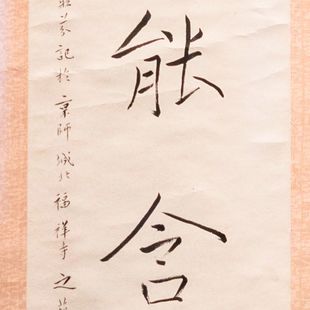 能含
芬記於京師城北福祥寺之